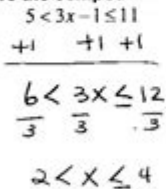 5 < 3x - 1 ≤ 11
+1 +1 +1
6 < 3x ≤ 12
3 3 3
2 < x ≤ 4